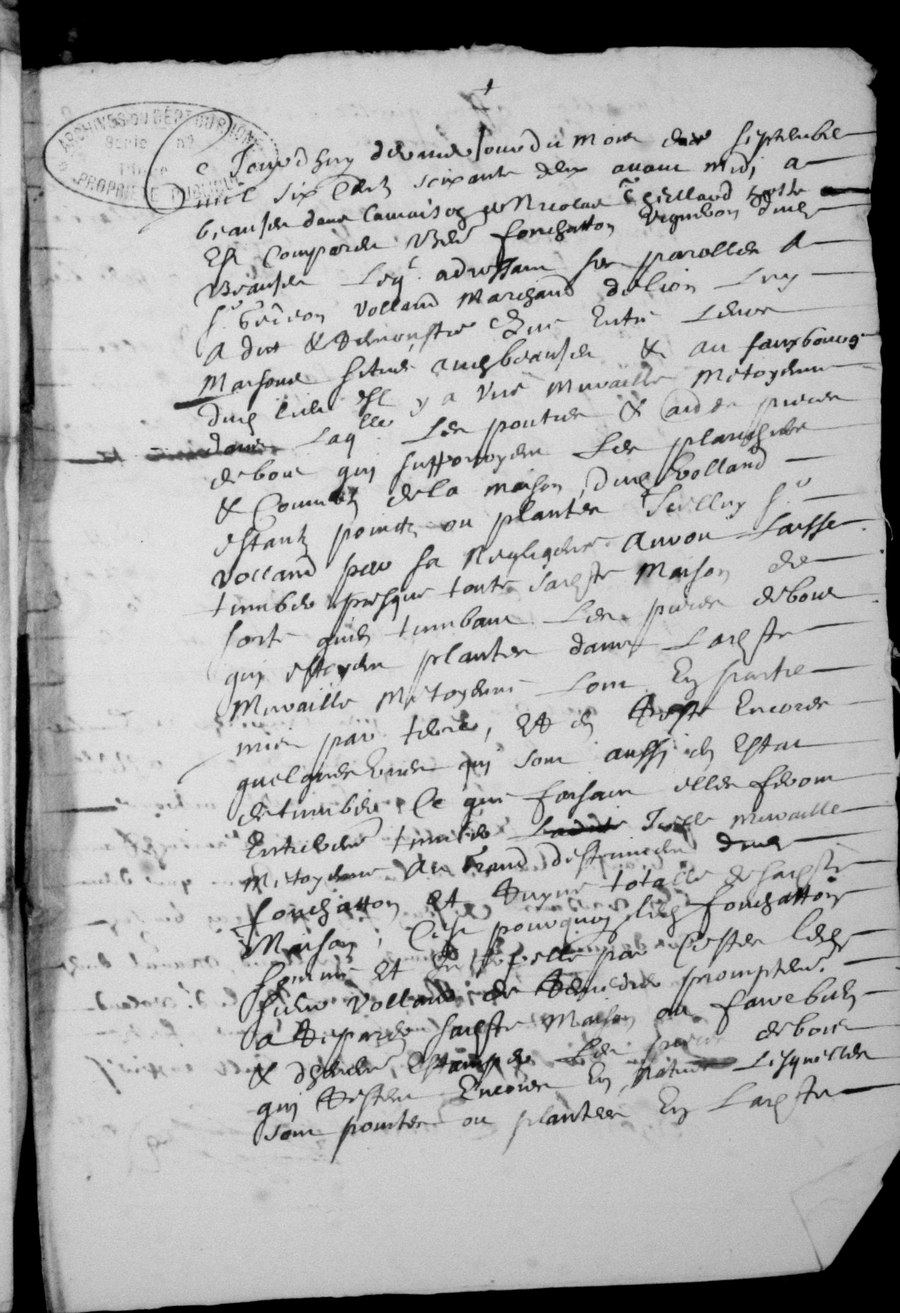 ARCHIVES DU DÉPT DU RHONE
PROPRIÉTÉ PUBLIQUE
Ce Jourdhuy deuxie Jour du mois de septembre
mil six Centz soixante deux avant midj a
beaujeu dans la maison de Nicolas
Est Compareu fonchatton vigneron dud
Beaujeu Leql adressant ses parolles A
sr Gedeon Volland Marchand de lion Luy
A dict & Remonstre Que Entre Leurs
Maisons situés aud beaujeu & au fauxbourg
dud lieu Est y a Une Muraille Metoyenne
Laqlle Les poutres & aud de pieces
de bois quj supportoyent Les planchers
& Couuertz de la maison dud Volland
estantz pointes ou plantes Icelluy sr
Volland par sa Negligence Auroit Laisse
tumber presque toute sadste Maison de
sorte quen tumbant Les pieces de bois
quj estoyent plantes dans Ladste
Muraille Metoyenne Lont En partie
mis par terre, Et en Reste Encores
quelques Unes quj sont aussj en Estat
de tumber Ce que faisant elles feront
Entierement tumber Icelle muraille
Metoyenne Au Grand destriment dud
fonchatton Et Ruyne totalle de sadste
Maison, C'est pourquoy led fonchatton
somme Et Interpelle par Cestes led
sieur Volland de Remedier promptemt
a Reparer sadste Maison ou faire bien
& dheuement Estamper Les pieces de bois
quj Restent Encores En nature Lesquelles
sont pointes ou plantees En Ladste